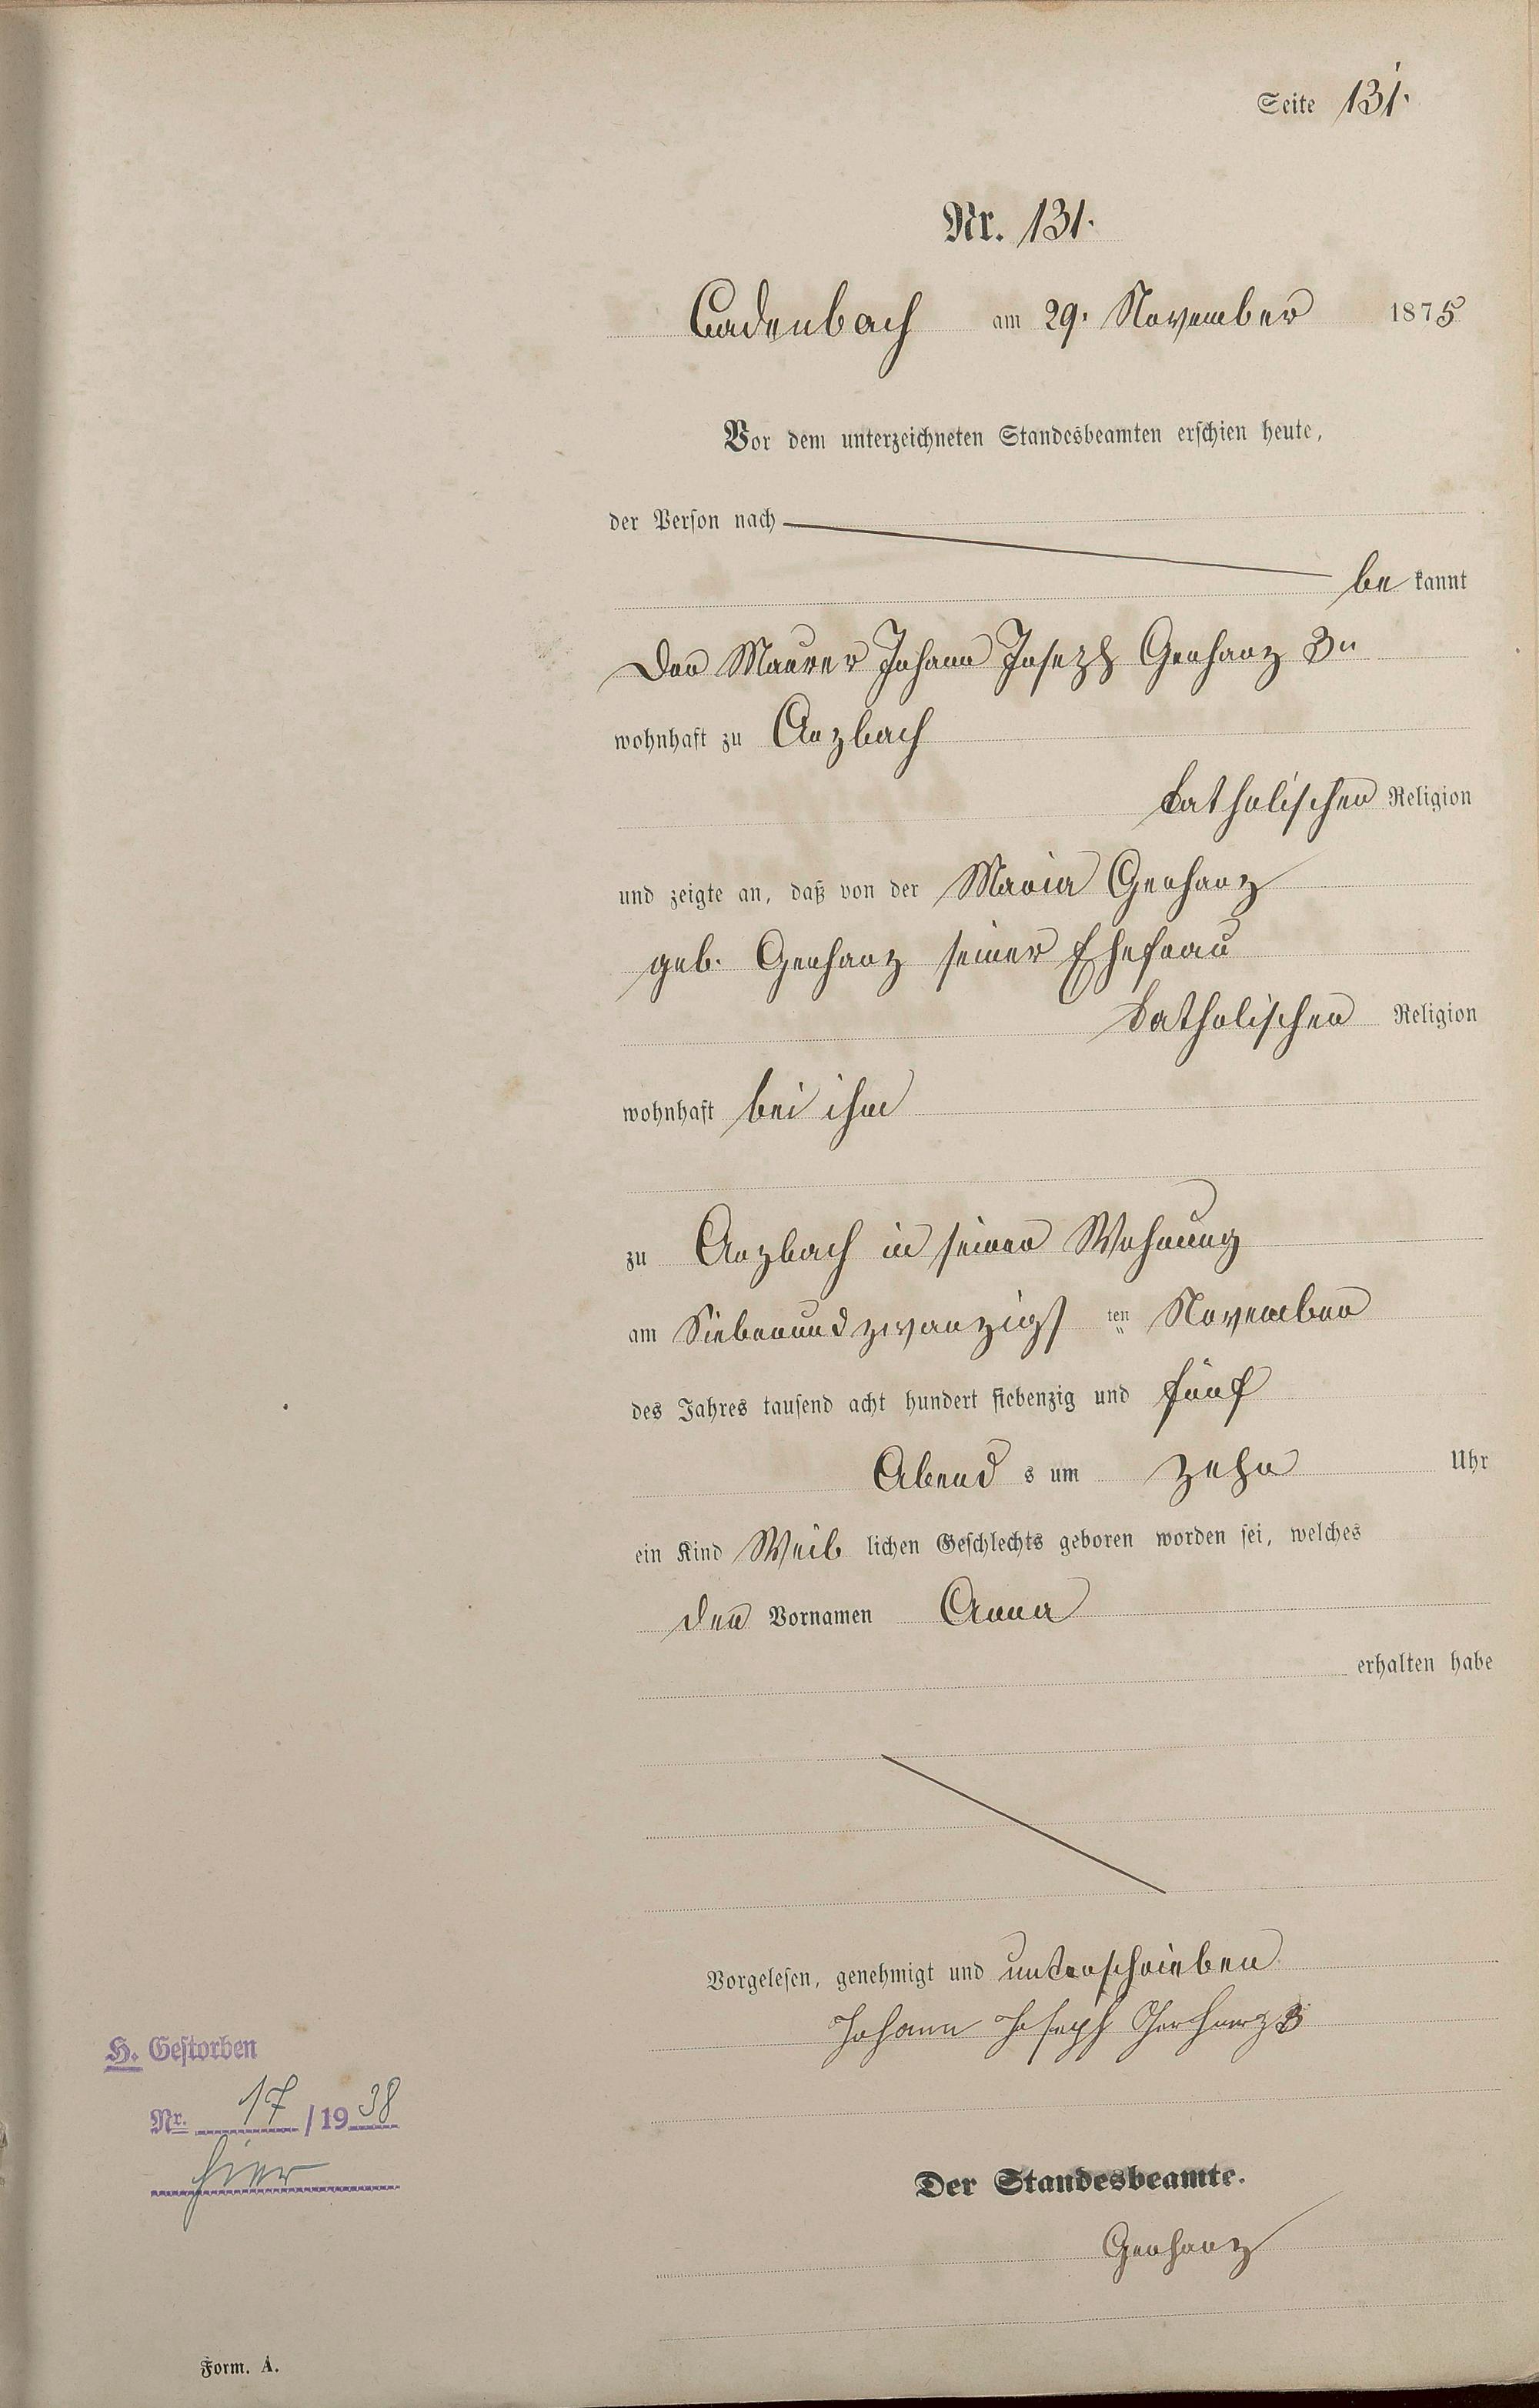 Seite 131.
Nr. 131.
Cadenbach am 29. November 1875
Vor dem unterzeichneten Standesbeamten erschien heute,
der Person nach
be kannt
Der Maurer Johann Joseph Gerharz 3r
wohnhaft zu Arzbach
katholischer Religion
und zeigte an, daß von der Maria Gerharz
geb. Gerharz seiner Ehefrau
katholischer Religion
wohnhaft bei ihm
zu Arzbach in seiner Wohnung
am Siebenundzwanzigs ten November
des Jahres tausend acht hundert siebenzig und fünf
Abend s um zehn Uhr
ein Kind Weib lichen Geschlechts geboren worden sei, welches
den Vornamen Anna
erhalten habe
Vorgelesen, genehmigt und unterschrieben
Johann Joseph Gerharz 3
H. Gestorben
Nr. 17 / 19 38
hier
Der Standesbeamte.
Gerharz
Form. A.